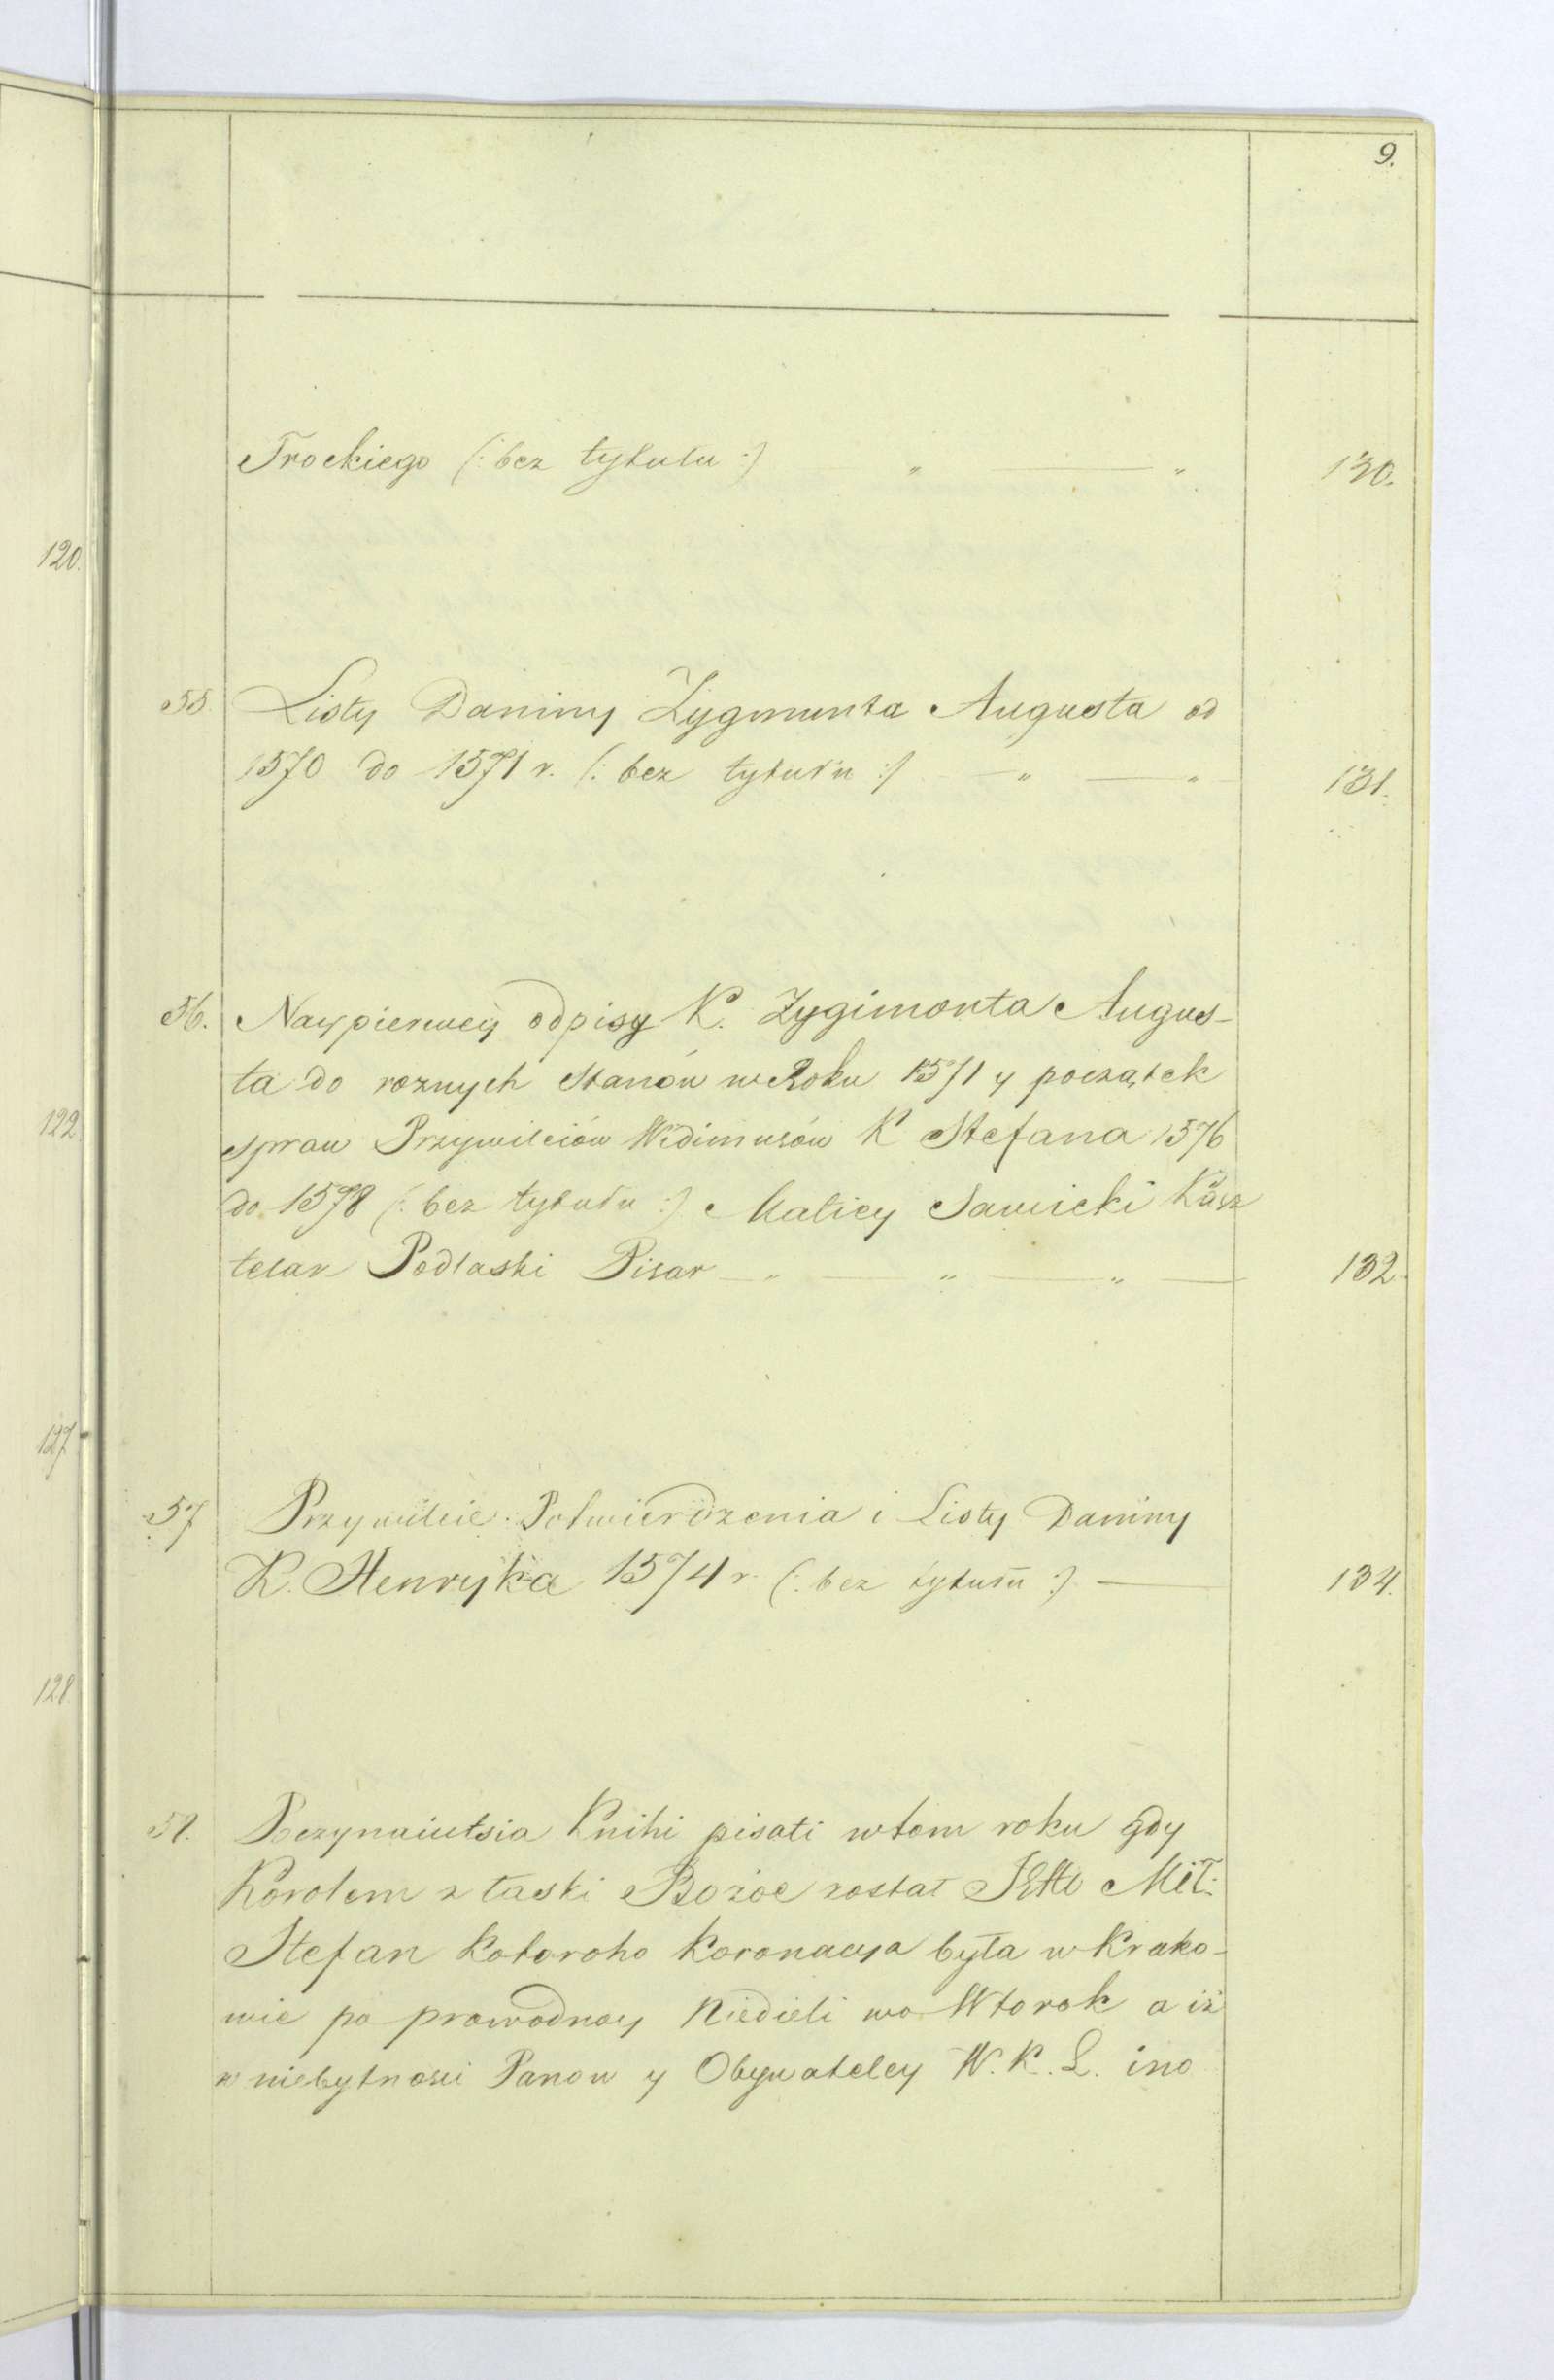 9.
Trockiego (: bez tytułu :) " — " 130.
120.
55. Listy Daniny Zygmunta Augusta od
1570 do 1571 r. (: bez tytułu :) — " — " — 131.
56. Naypierwey odpisy K. Zygimonta Augus-
ta do roznych Stanów w Roku 1571 y początek
122
spraw Przywileiów Widimusów K Stefana 1576
do 1578 (: bez tytułu :) Maticy Sawicki Kasz
telan Podlaski Pisar — " — " — " — 132.
127.
57 Przywileie Potwierdzenia i Listy Daniny
K. Henryka 1574 r. (: bez tytułu :) — 134.
128.
58. Poczynaiutsia Knihi pisati wtom roku gdy
Korolem z łaski Bożoe został JEHO Mił:
Stefan kotoroho koronacya była w Krako-
wie po prowodnoy Niedieli wo Wtorok a iż
w niebytnosci Panow y Obywateley W. K. L. ino